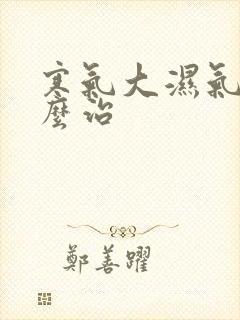 寒氣大濕氣
麼治
鄭善躍